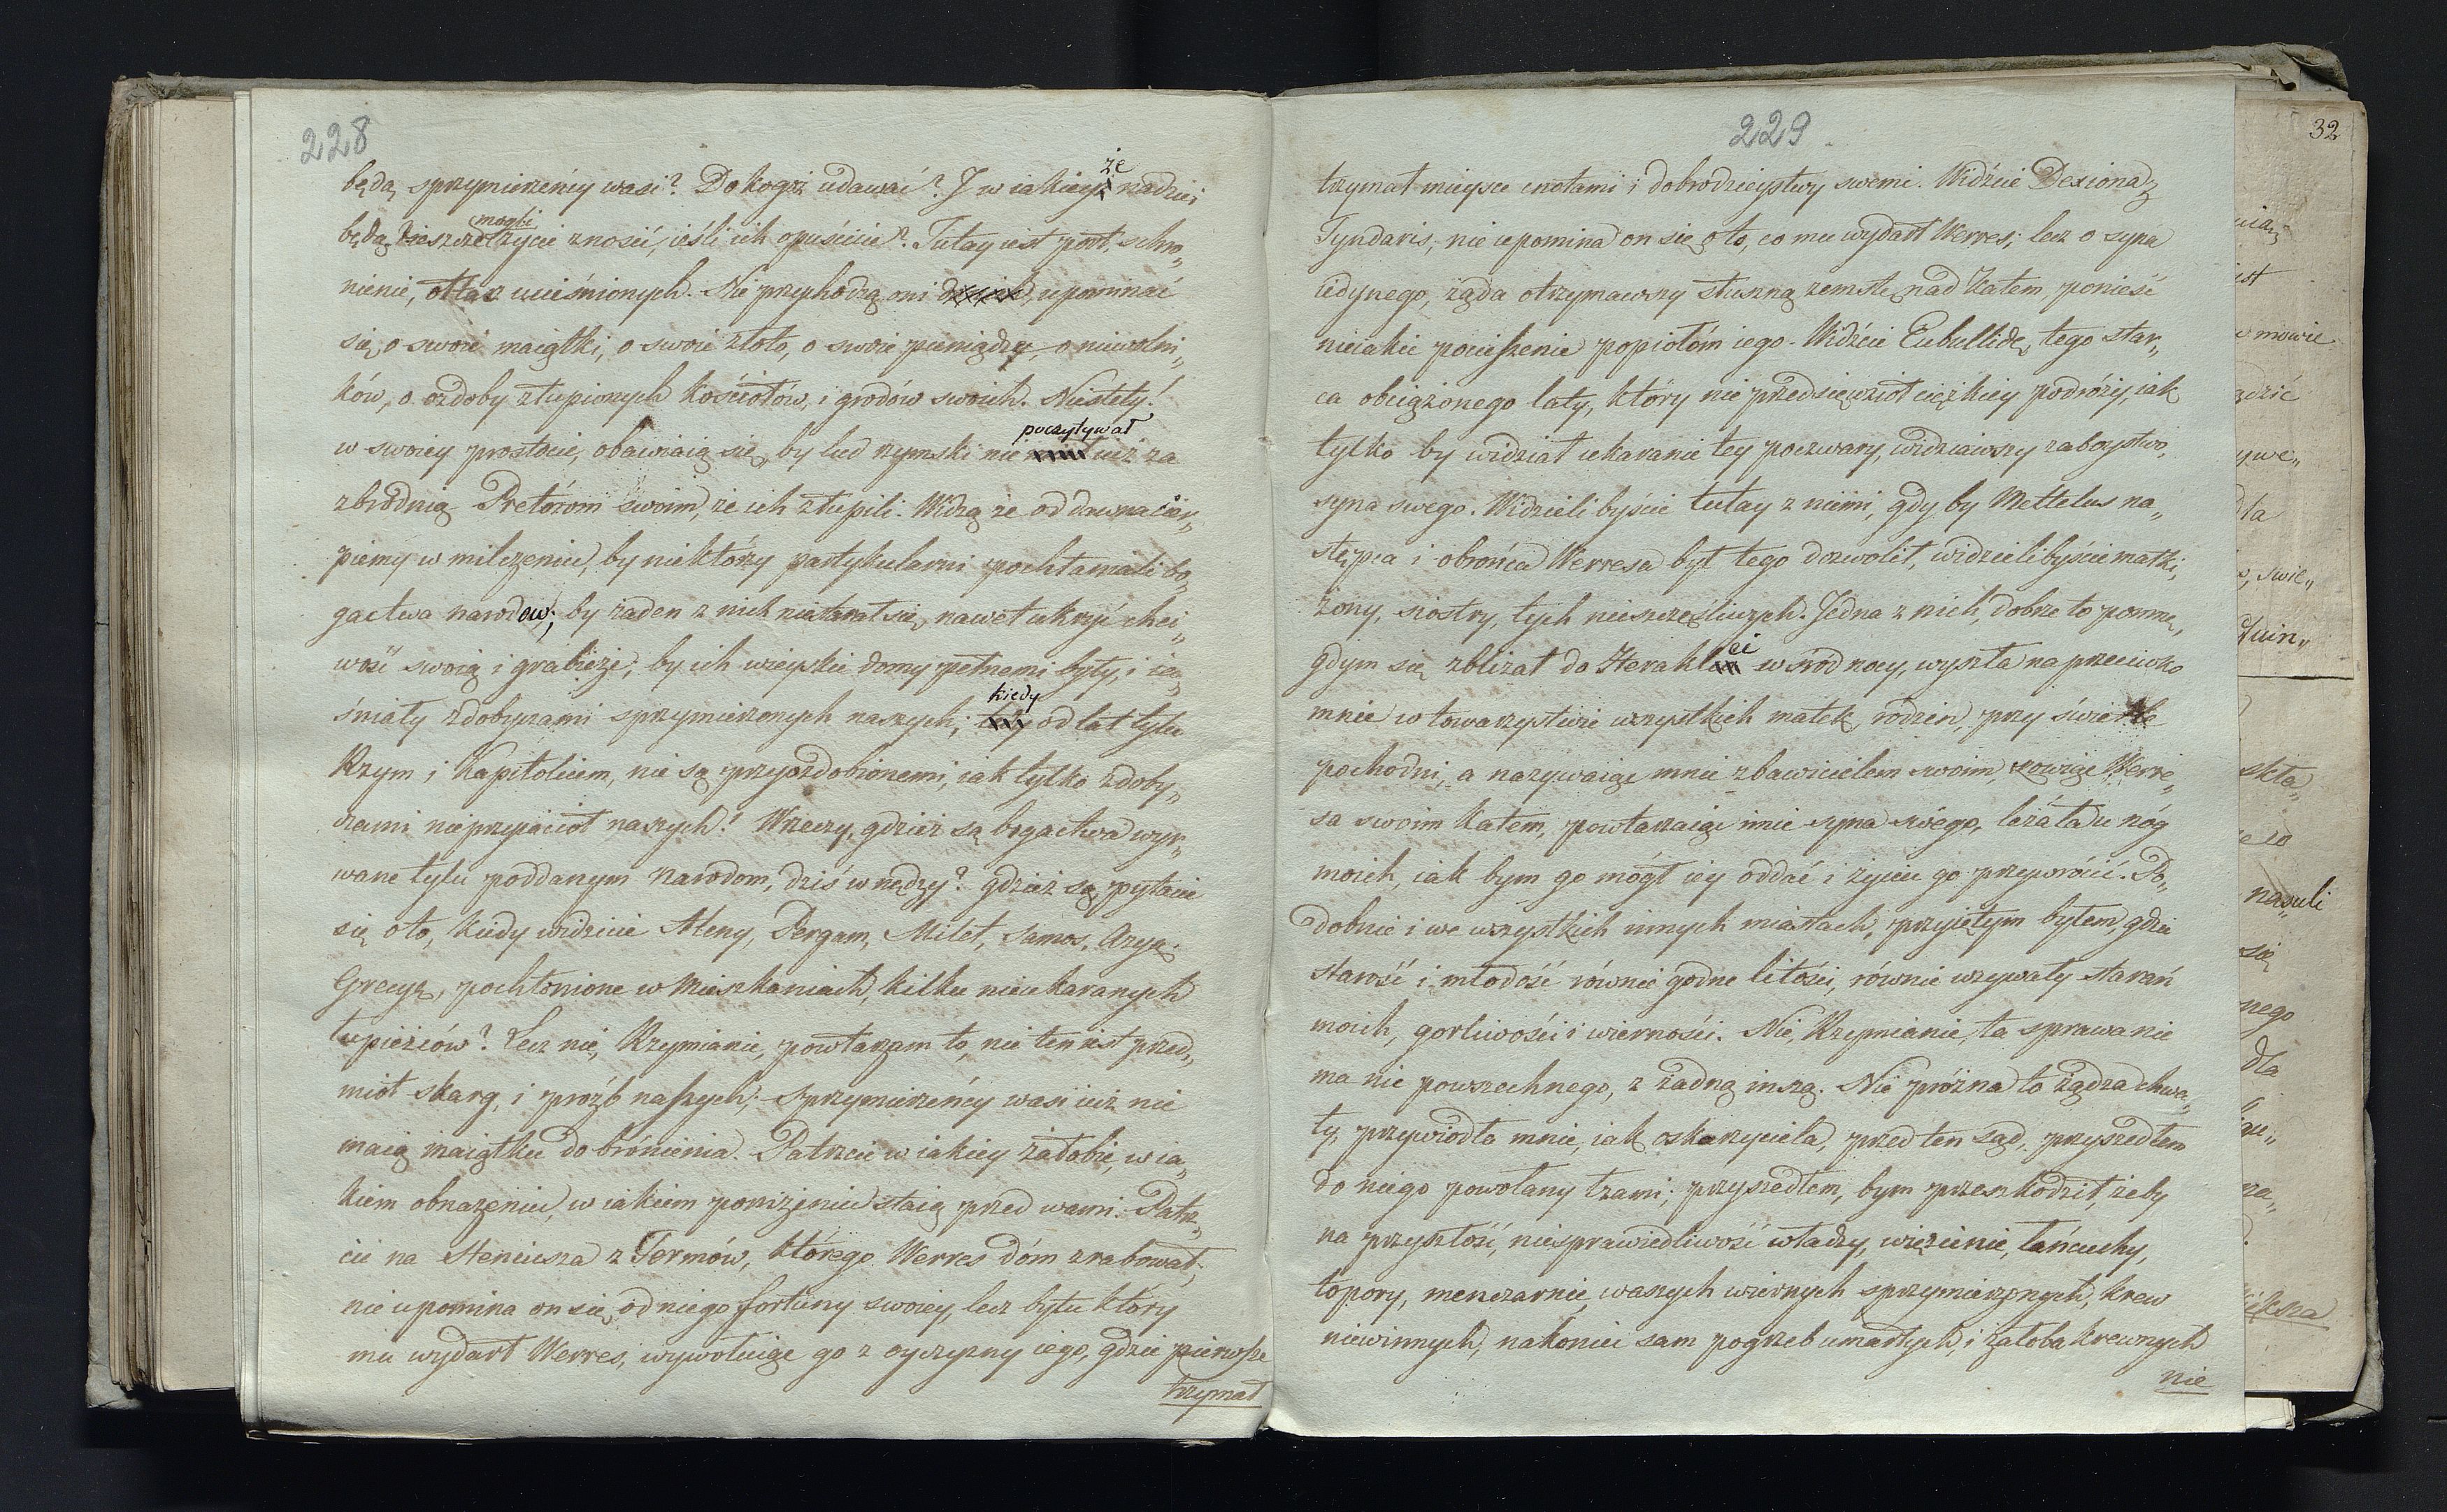 228
będą sprzymierzeńcy wasi? Do kogóż udawać? J w iakieyże nadziei
będą mogli ieszcze życie znosić, ieśli ich opuścicie? Tutay iest port, schro„
nienie, ołtarz uciśnionych. Nie przychodzą oni upominać
się, o swoie maiątki, o swoie złoto, o swoie pieniądze, o niewolni„
ków, o ozdoby złupionych kościołów, i grodów swoich. Niestety!
w swoiey prostocie, obawiaią się, by lud rzymski nie poczytywał iuż za
zbrodnią Pretórom swoim, że ich złupili. Widzą że od dawna cier„
piemy w milczeniu, by niektórzy partykularni pochłaniali bo„
gactwa narodow; by żaden z nich nie starał się, nawet ukryć chci„
wość swoią i grabieże; by ich wieyskie domy pełnemi były, i ia„
śniały zdobyczami sprzymierzonych naszych; kiedy od lat tylu
Rzym i Kapitolium, nie są przyozdobionemi, iak tylko zdoby„
czami nieprzyiaciół naszych! W rzeczy, gdzież są bogactwa wyr„
wane tylu poddanym narodom, dziś w nędzy? gdzież są, pytacie
się o to, kiedy widzicie Ateny, Pergam, Milet, Samos, Azyę,
Grecyą, pochłonione w mieszkaniach, kilku nieukaranych
łupieżców? Lecz nie, Rzymianie, powtarzam to, nie ten iest przed„
miot skarg, i próźb naszych; sprzymierzeńcy wasi iuż nie
maią maiątku do bronienia. Patrzcie w iakiey żałobie, w ia„
kiem obnażeniu, w iakiem poniżeniu staią przed wami. Patrz„
cie na Steniusza z Termów, którego Werres dóm zrabował;
nie upomina on się, od niego fortuny swoiey, lecz bytu który
mu wydarł Werres, wywołuiąc go z oyczyzny iego, gdzie pierwsze
trzymał
229
trzymał mieysce cnotami i dobrodzieystwy swemi. Widźcie Dexiona z
Tyndaris, nie upomina on się o to, co mu wydarł Werres; lecz o syna
iedynego, żąda otrzymawszy słuszną zemstę nad katem, ponieść
nieiakie pocieszenie popiołóm iego. Widźcie Eubullidę, tego star„
ca obciążonego laty, który nie przedsięwziął ciężkiey podróży, iak
tylko by widział ukaranie tey poczwary, widziawszy zaboystwo,
syna swego. Widzieli byście tutay z niemi, gdy by Mettelus na„
stępca i obrońca Werresa był tego dozwolił, widzielibyście matki,
żony, siostry, tych nieszczęśliwych. Jedna z nich, dobrze to pomnę,
gdym się zbliżał do Heraklei wśród nocy, wyszła na przeciwko
mnie w towarzystwie wszystkich matek rodzin, przy świetle
pochodni, a nazywaiąc mnie zbawicielem swoim, zowiąc Werre„
sa swoim katem, powtarzaiąc imie syna swego, leżała u nóg
moich, iak bym go mógł iey oddać i życiu go przywrócić. Po„
dobnie i we wszystkich innych miastach, przyiętym byłem, gdzie
starość i młodość równie godne litości, równie wzywały starań
moich, gorliwości i wierności. Nie, Rzymianie, ta sprawa nie
ma nic powszechnego, z żadną inszą. Nie próżna to żądza chwa„
ły, przywiodła mnie, iak oskarzyciela, przed ten sąd, przyszedłem
do niego powołany łzami; przyszedłem, bym przeszkodził, żeby
na przyszłość, niesprawiedliwość władzy, więzienie, łańcuchy,
topory, menczarnie, waszych wiernych sprzymierzonych, krew
niewinnych, nakoniec sam pogrzeb umarłych, i żałoba krewnych
nie
32